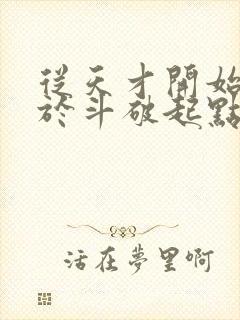 從天才開始
於斗破起點
活在夢里啊